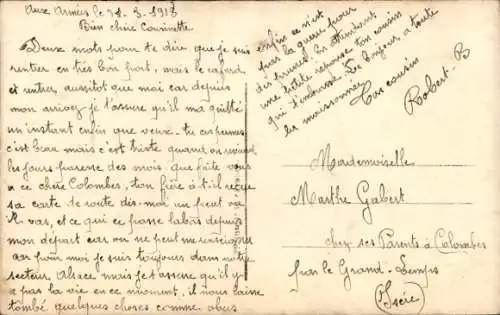 Aux Armées le 21. 3. 1918
Bien chère Cousinette
Deux mots pour te dire que je suis
rentrer en très bon port, mais le cafard
et rentrer, aussitot que moi car depuis
mon arrivez je t'assure qu'il ma quitté
un instant enfin que veux-tu
c'est beau mais c'est triste quand on
les jours des mois que faite vous
a ce chère Colombes, ton frère a t'il reçue
sa carte de route dis-moi un peut ou
il vas, et ce qui ce passe labas depuis
mon départ car on ne peut me renseigner
moi je suis toujours dans notre
secteur, Alsace mais je t'assure qu'il y
a pas la vie en ce moment, il nous laisse
tombé quelques choses comme obus
enfin ce n'est
pas la guerre pour
des prunes. En attendant
une petite réponse ton cousin
qui t'embrasse. Le bonjour a toute
la maisonnée
Ton cousin
Robert. B
Mademoiselle
Marthe Gabert
chez ses Parents à Colombes
par le Grand-Lemps
(Isère)